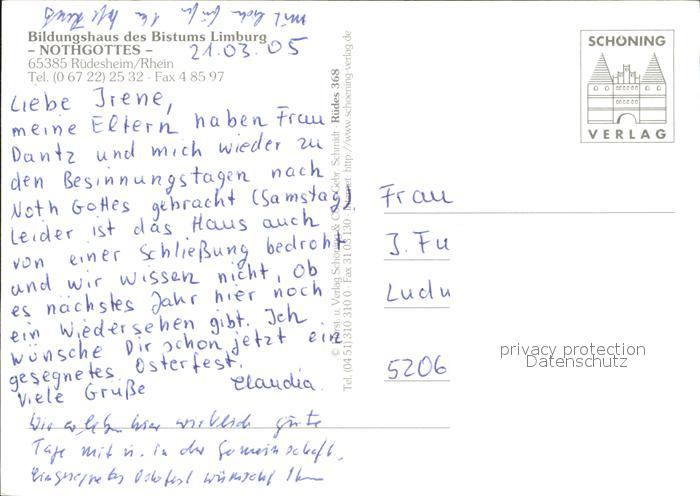 Bildungshaus des Bistums Limburg
– NOTHGOTTES –
65385 Rüdesheim/Rhein
Tel. (0 67 22) 25 32 · Fax 4 85 97
21.03.05
Liebe Irene,
meine Eltern haben Frau
Dantz und mich wieder zu
den Besinnungstagen nach
Noth Gottes gebracht (Samstag).
Leider ist das Haus auch
von einer Schließung bedroht
und wir wissen nicht, ob
es nächstes Jahr hier noch
ein Wiedersehen gibt. Ich
wünsche Dir schon jetzt ein
gesegnetes Osterfest.
Viele Grüße Claudia.
Wir erleben hier wirklich gute
Tage mit u. in der Gemeinschaft.
Ein gesegnetes Osterfest wünscht Ihnen
© Schöning & Co. + Gebr. Schmidt · Rüdes 368
Tel. (04 51) 310 310 0 · Fax 31 03 130 · Internet: http://www.schoening-verlag.de
SCHÖNING
VERLAG
Frau
J. Fu
Ludw
5206
privacy protection
Datenschutz